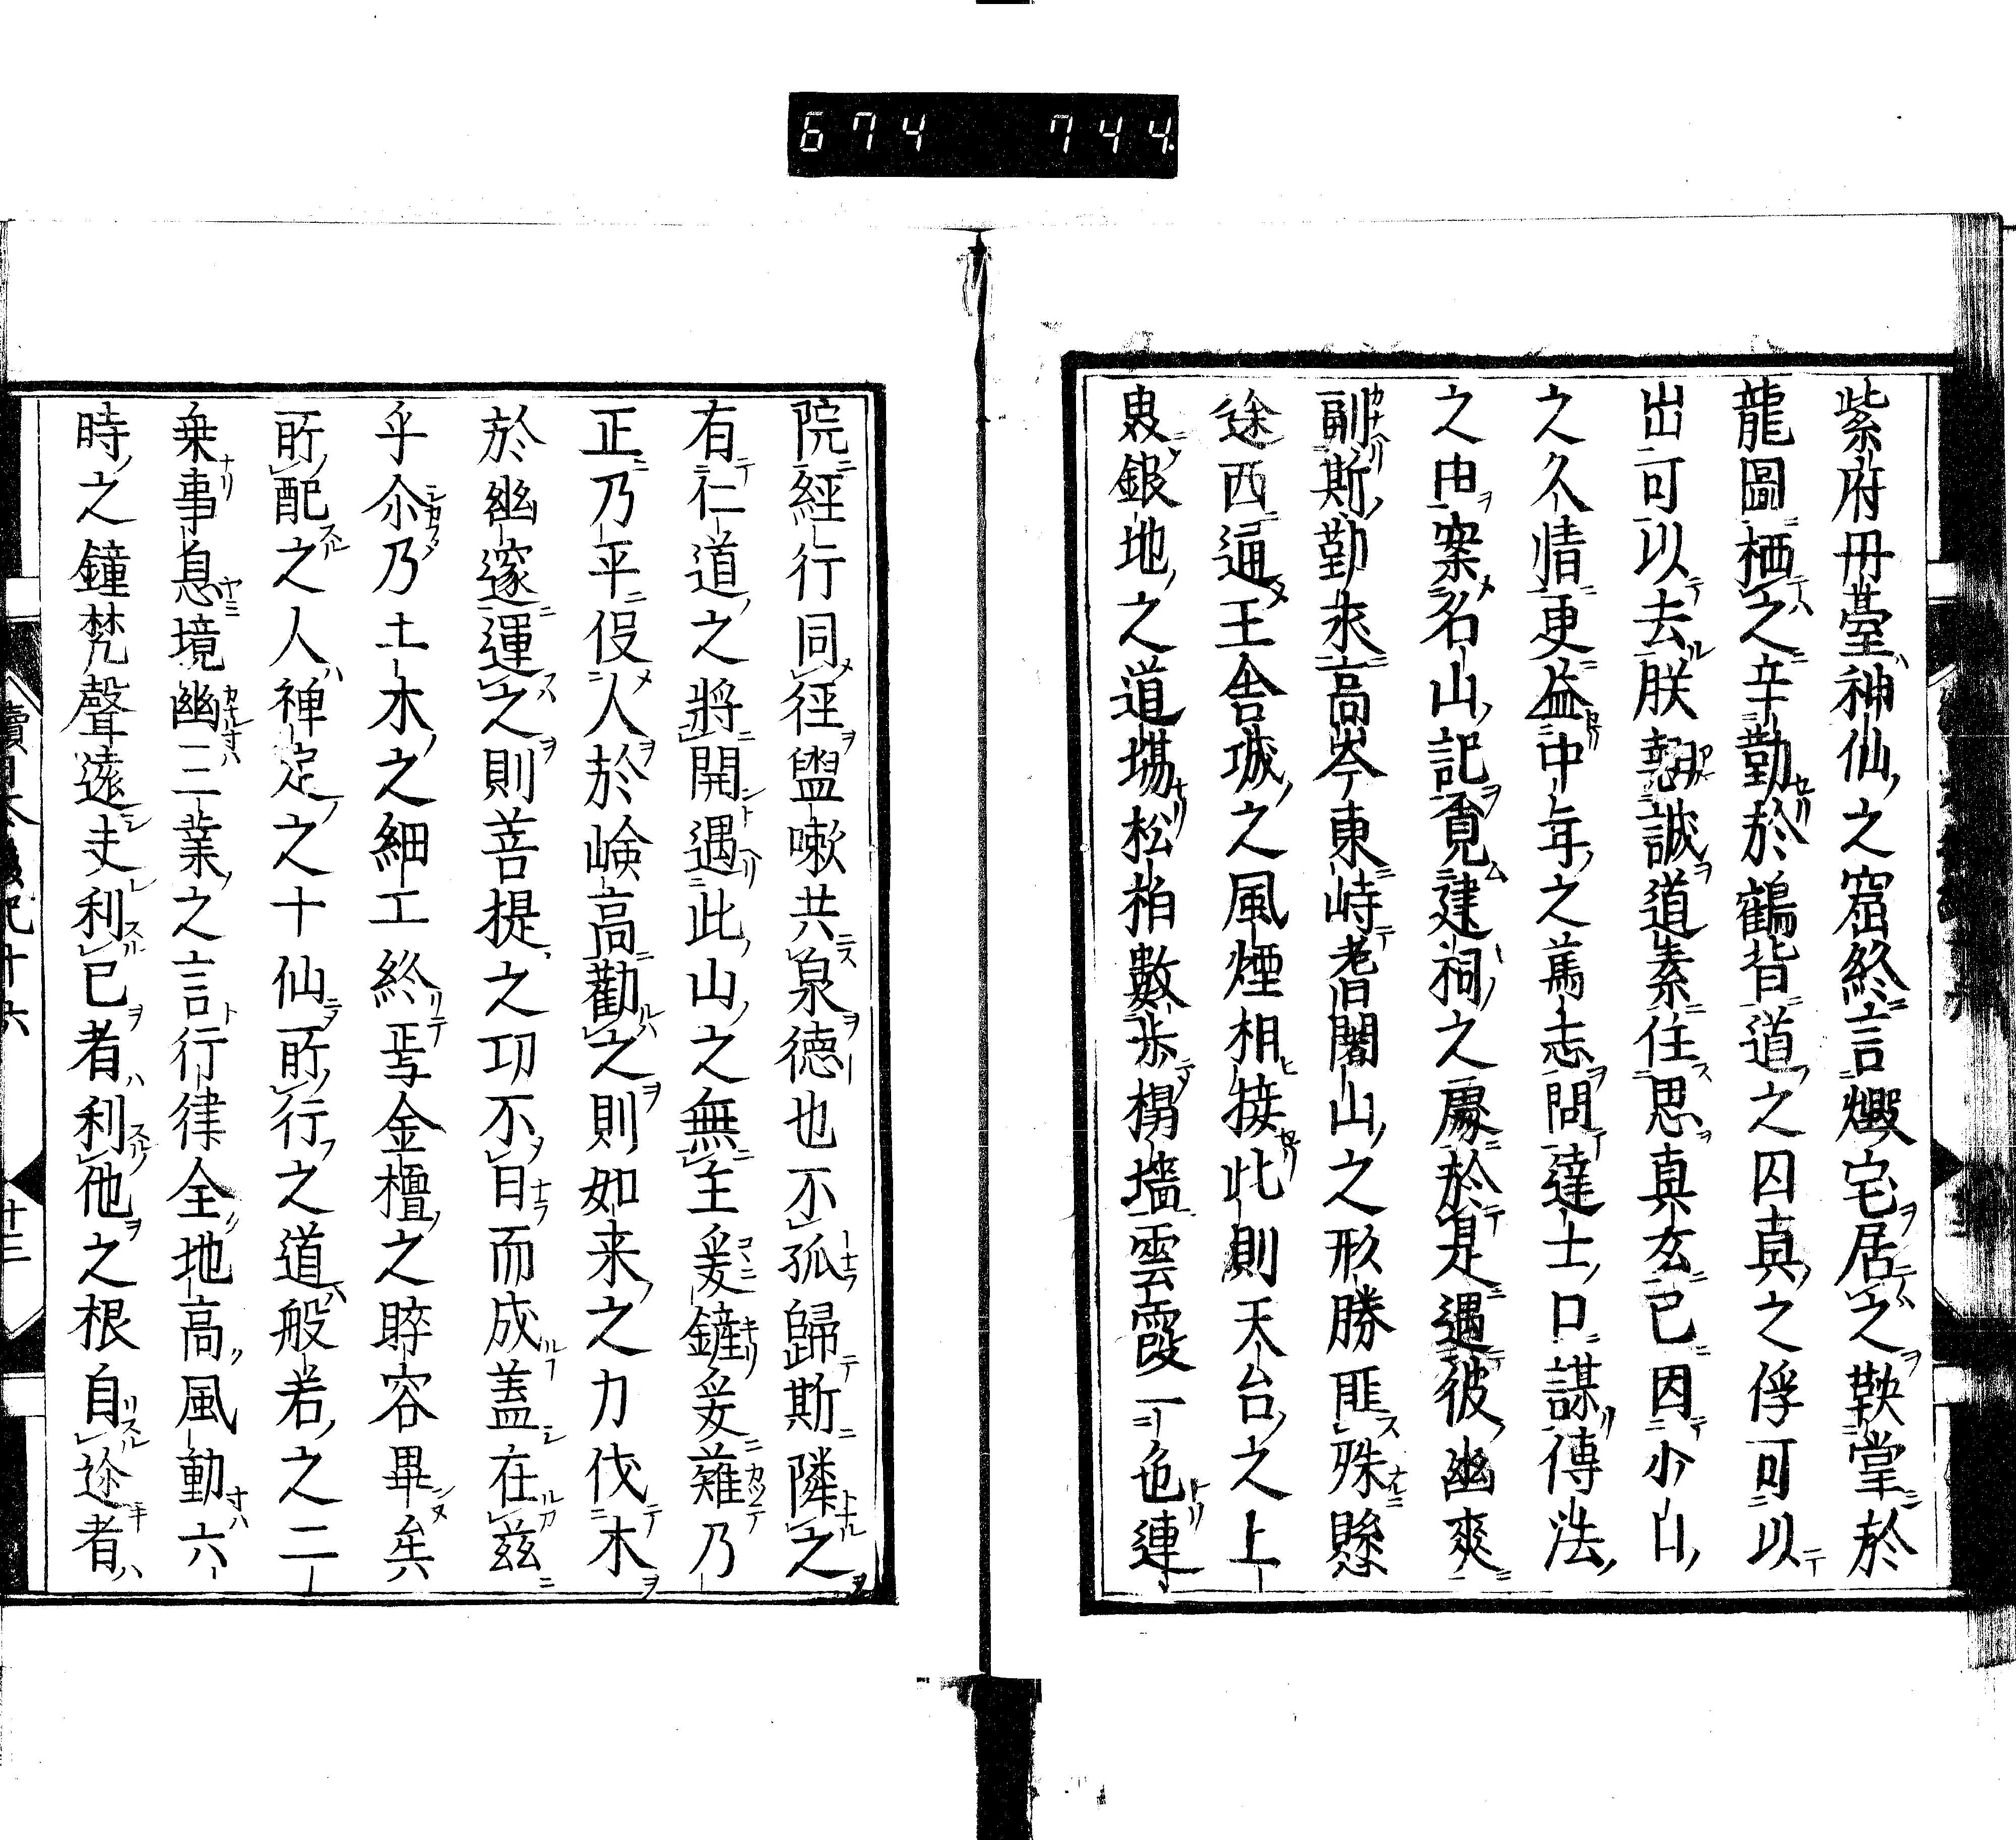 674 744
紫府丹臺神仙之窟終言爕宅居之鞅掌於
龍圖栖之辛勤於鶴背道之囚真之俘可以
出可以去朕翹誠道素住思真玄已因小山
之久情更益中年之篤志問達士口謀傳法
之由案名山記覓建祠之處於是遇彼幽爽
副斯勤求高岑東峙耆闍山之形勝匪殊懸
途西通王舎城之風煙相接此則天台之上
銀地之道場松柏數歩楊墻雲霞一色連
院經行同徑盥嗽共泉徳也不孤歸斯隣之
有仁道之將開遇此山之無主爰鏟爰薙乃
正乃平役人於嶮高勸之則如来之力伐木
於幽邃運之則菩提之功不日而成蓋在茲
乎尒乃土木之細工終焉金檀之睟容畢矣
所配之人禅定之十仙所行之道般若之二
乗事息境幽三業之言行律全地高風動六
時之鐘梵聲遠夫利己者利他之根自迩者
續日本後紀十六 十三